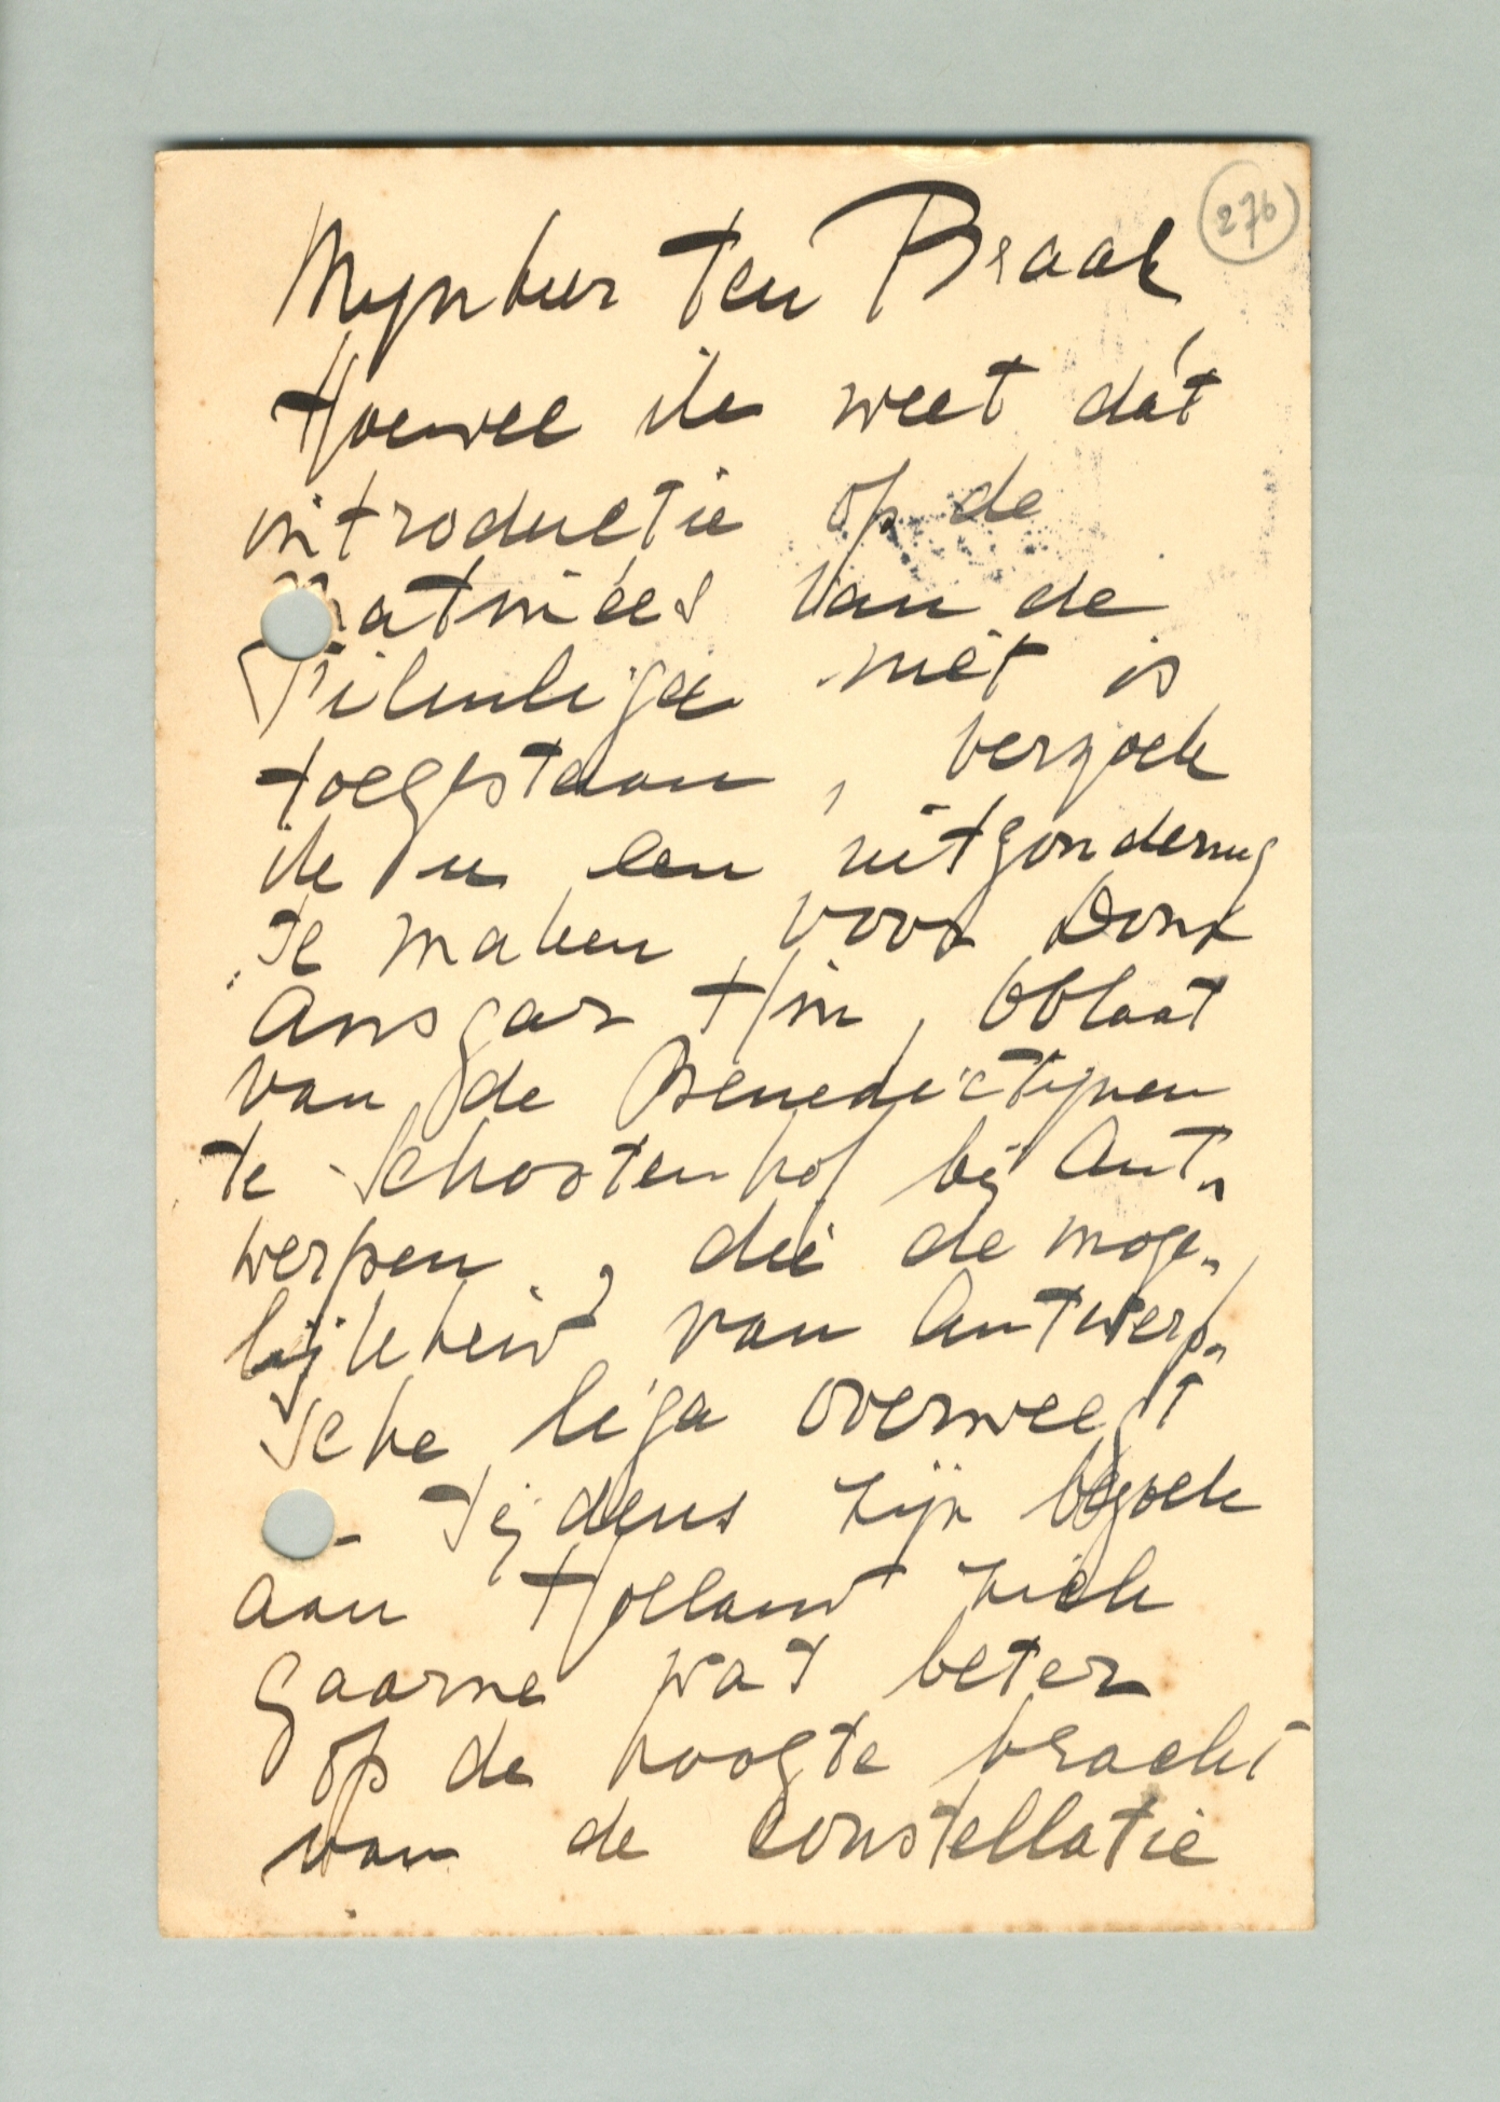 276
Mynheer ten Braak
Hoewel ik weet dát
introductie op de
matinées van de
Filmliga niet is
toegestaan, verzoek
ik u een uitzondering
te maken voor Dom
Ansgar Hm, oblaat
van de Benedictijnen
te Schootenhof bij Ant-
werpen, die de moge-
lijkheid van Antwerp-
sche liga overweegt
- tijdens zijn bezoek
aan Holland zich
gaarne wat beter
op de hoogte bracht
van de constellatie